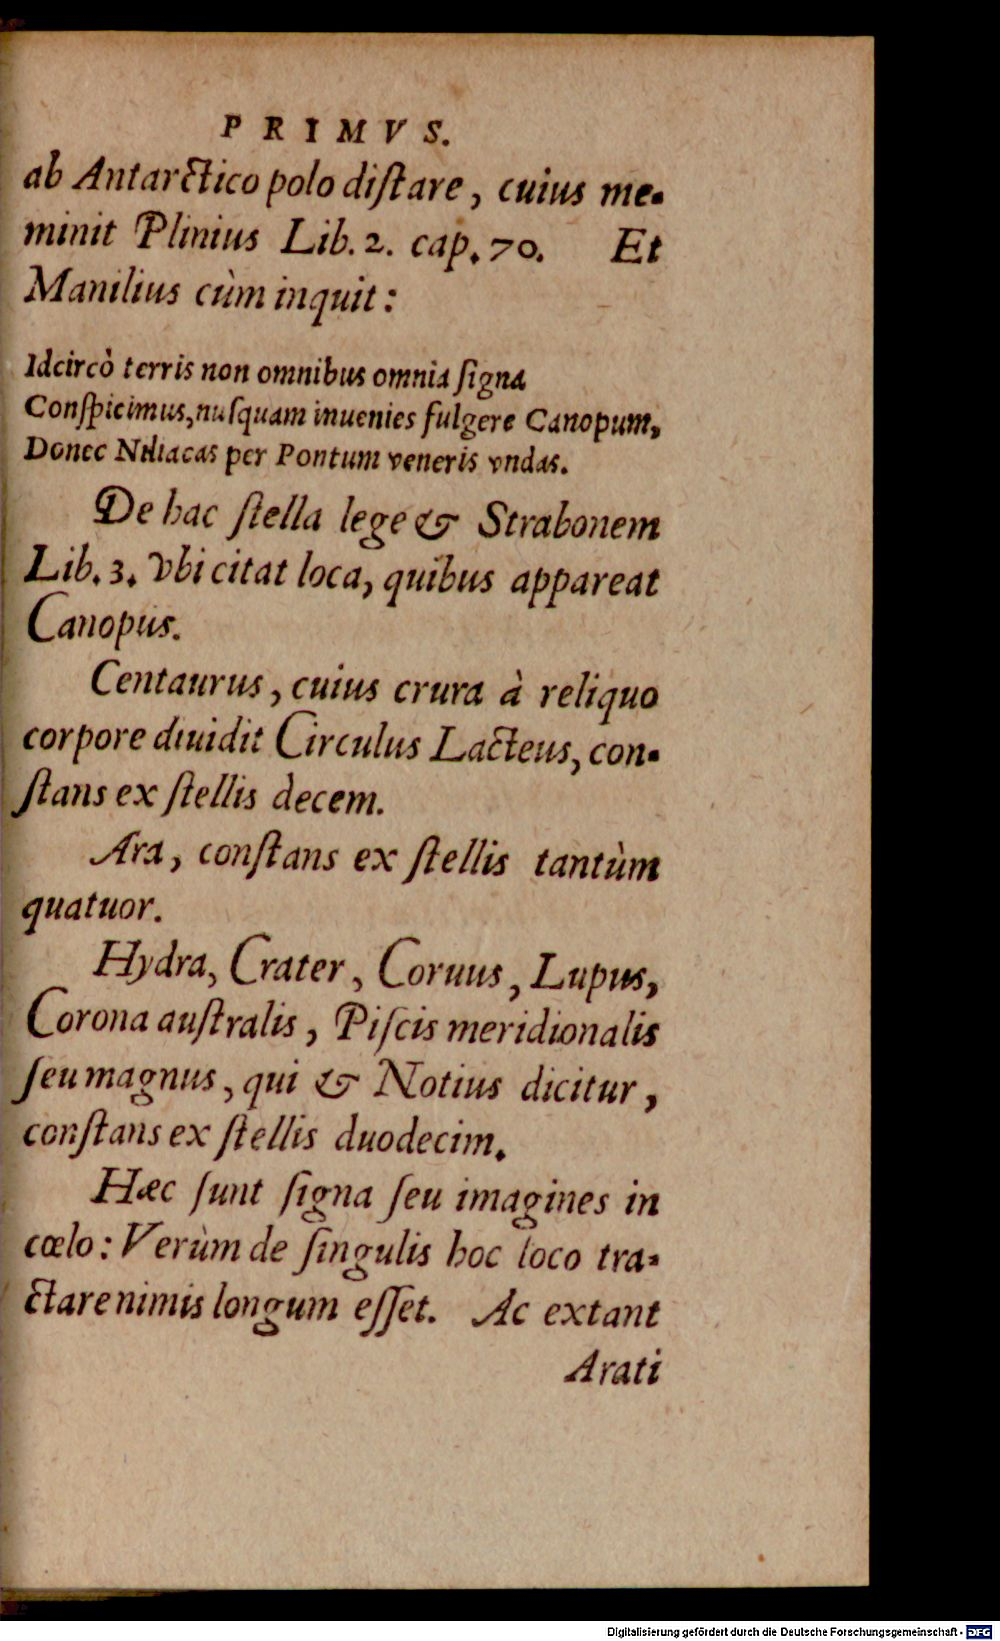 PRIMVS.
ab Antarctico polo diſtare, cuius me-
minit Plinius Lib. 2. cap. 70. Et
Manilius cùm inquit:
Idcircò terris non omnibus omnia ſigna
Conſpicimus, nuſquam inuenies fulgere Canopum,
Donec Niliacas per Pontum veneris vndas.
De hac ſtella lege & Strabonem
Lib. 3. Vbi citat loca, quibus appareat
Canopus.
Centaurus, cuius crura à reliquo
corpore diuidit Circulus Lacteus, con-
ſtans ex ſtellis decem.
Ara, conſtans ex ſtellis tantùm
quatuor.
Hydra, Crater, Coruus, Lupus,
Corona auſtralis, Piſcis meridionalis
ſeu magnus, qui & Notius dicitur,
conſtans ex ſtellis duodecim.
Hæc ſunt ſigna ſeu imagines in
cœlo: Verùm de ſingulis hoc loco tra-
ctare nimis longum eſſet. Ac extant
Arati
Digitalisierung gefördert durch die Deutsche Forschungsgemeinschaft - DFG